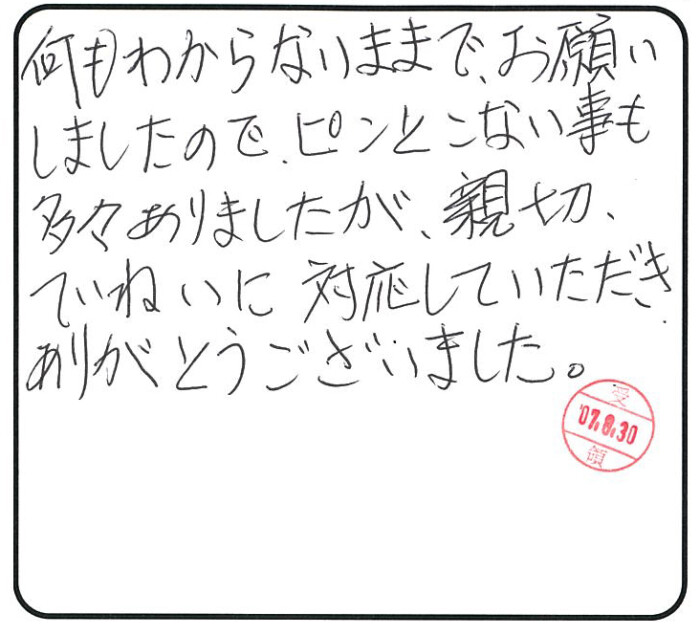 何もわからないままで、お願い
しましたので、ピンとこない事も
多々ありましたが、親切、
ていねいに 対応していただき
ありがとうございました。
受
'07.8.30
領